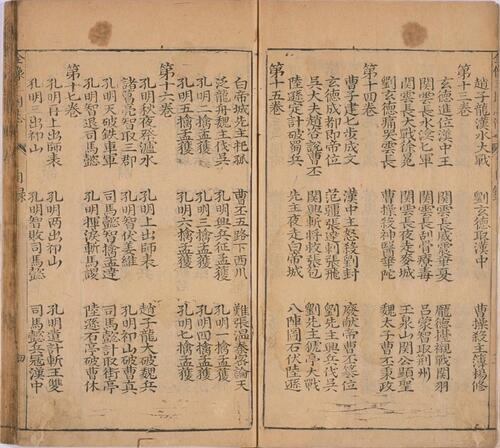 趙子龍漢水大戰 劉玄德智取漢中 曹操殺主簿楊修
第十三卷
玄德進位漢中王 關雲長威震華夏 龐德擡櫬戰關羽
關雲長水渰七軍 關雲長刮骨療毒 呂蒙智取荆州
關雲長大戰徐晃 關雲長夜走麥城 玉泉山關公顯聖
劉玄德痛哭雲長 曹操殺神醫華陀 魏太子曹丕秉政
第十四卷
曹子建七步成文 漢中王怒殺劉封 廢獻帝曹丕篡位
玄德成都即帝位 范疆張達刺張飛 劉先主興兵伐吳
吳大夫趙咨說曹丕 關興斬將救張包 劉先主猇亭大戰
陸遜定計破蜀兵 先主夜走白帝城 八陣圖石伏陸遜
第十五卷
白帝城先主托孤 曹丕五路下西川 難張溫秦宓論天
泛龍舟魏主伐吳 孔明興兵征孟獲 孔明一擒孟獲
孔明二擒孟獲 孔明三擒孟獲 孔明四擒孟獲
孔明五擒孟獲 孔明六擒孟獲 孔明七擒孟獲
第十六卷
孔明秋夜祭瀘水 孔明上出師表 趙子龍大破魏兵
諸葛亮智取三郡 孔明智伏姜維 孔明祁山破曹真
孔明大破鐵車軍 司馬懿智擒孟達 司馬懿計取街亭
孔明智退司馬懿 孔明揮淚斬馬謖 陸遜石亭破曹休
第十七卷
孔明再上出師表 孔明兩出祁山 孔明遺計斬王雙
孔明三出祁山 孔明智敗司馬懿 司馬懿兵寇漢中
目錄 四